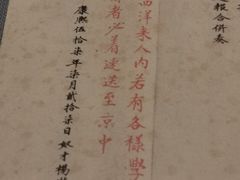 報合併奏
西洋來人內若有各樣學
者必着速送至京中
康熙伍拾柒年柒月貳拾柒日奴才楊